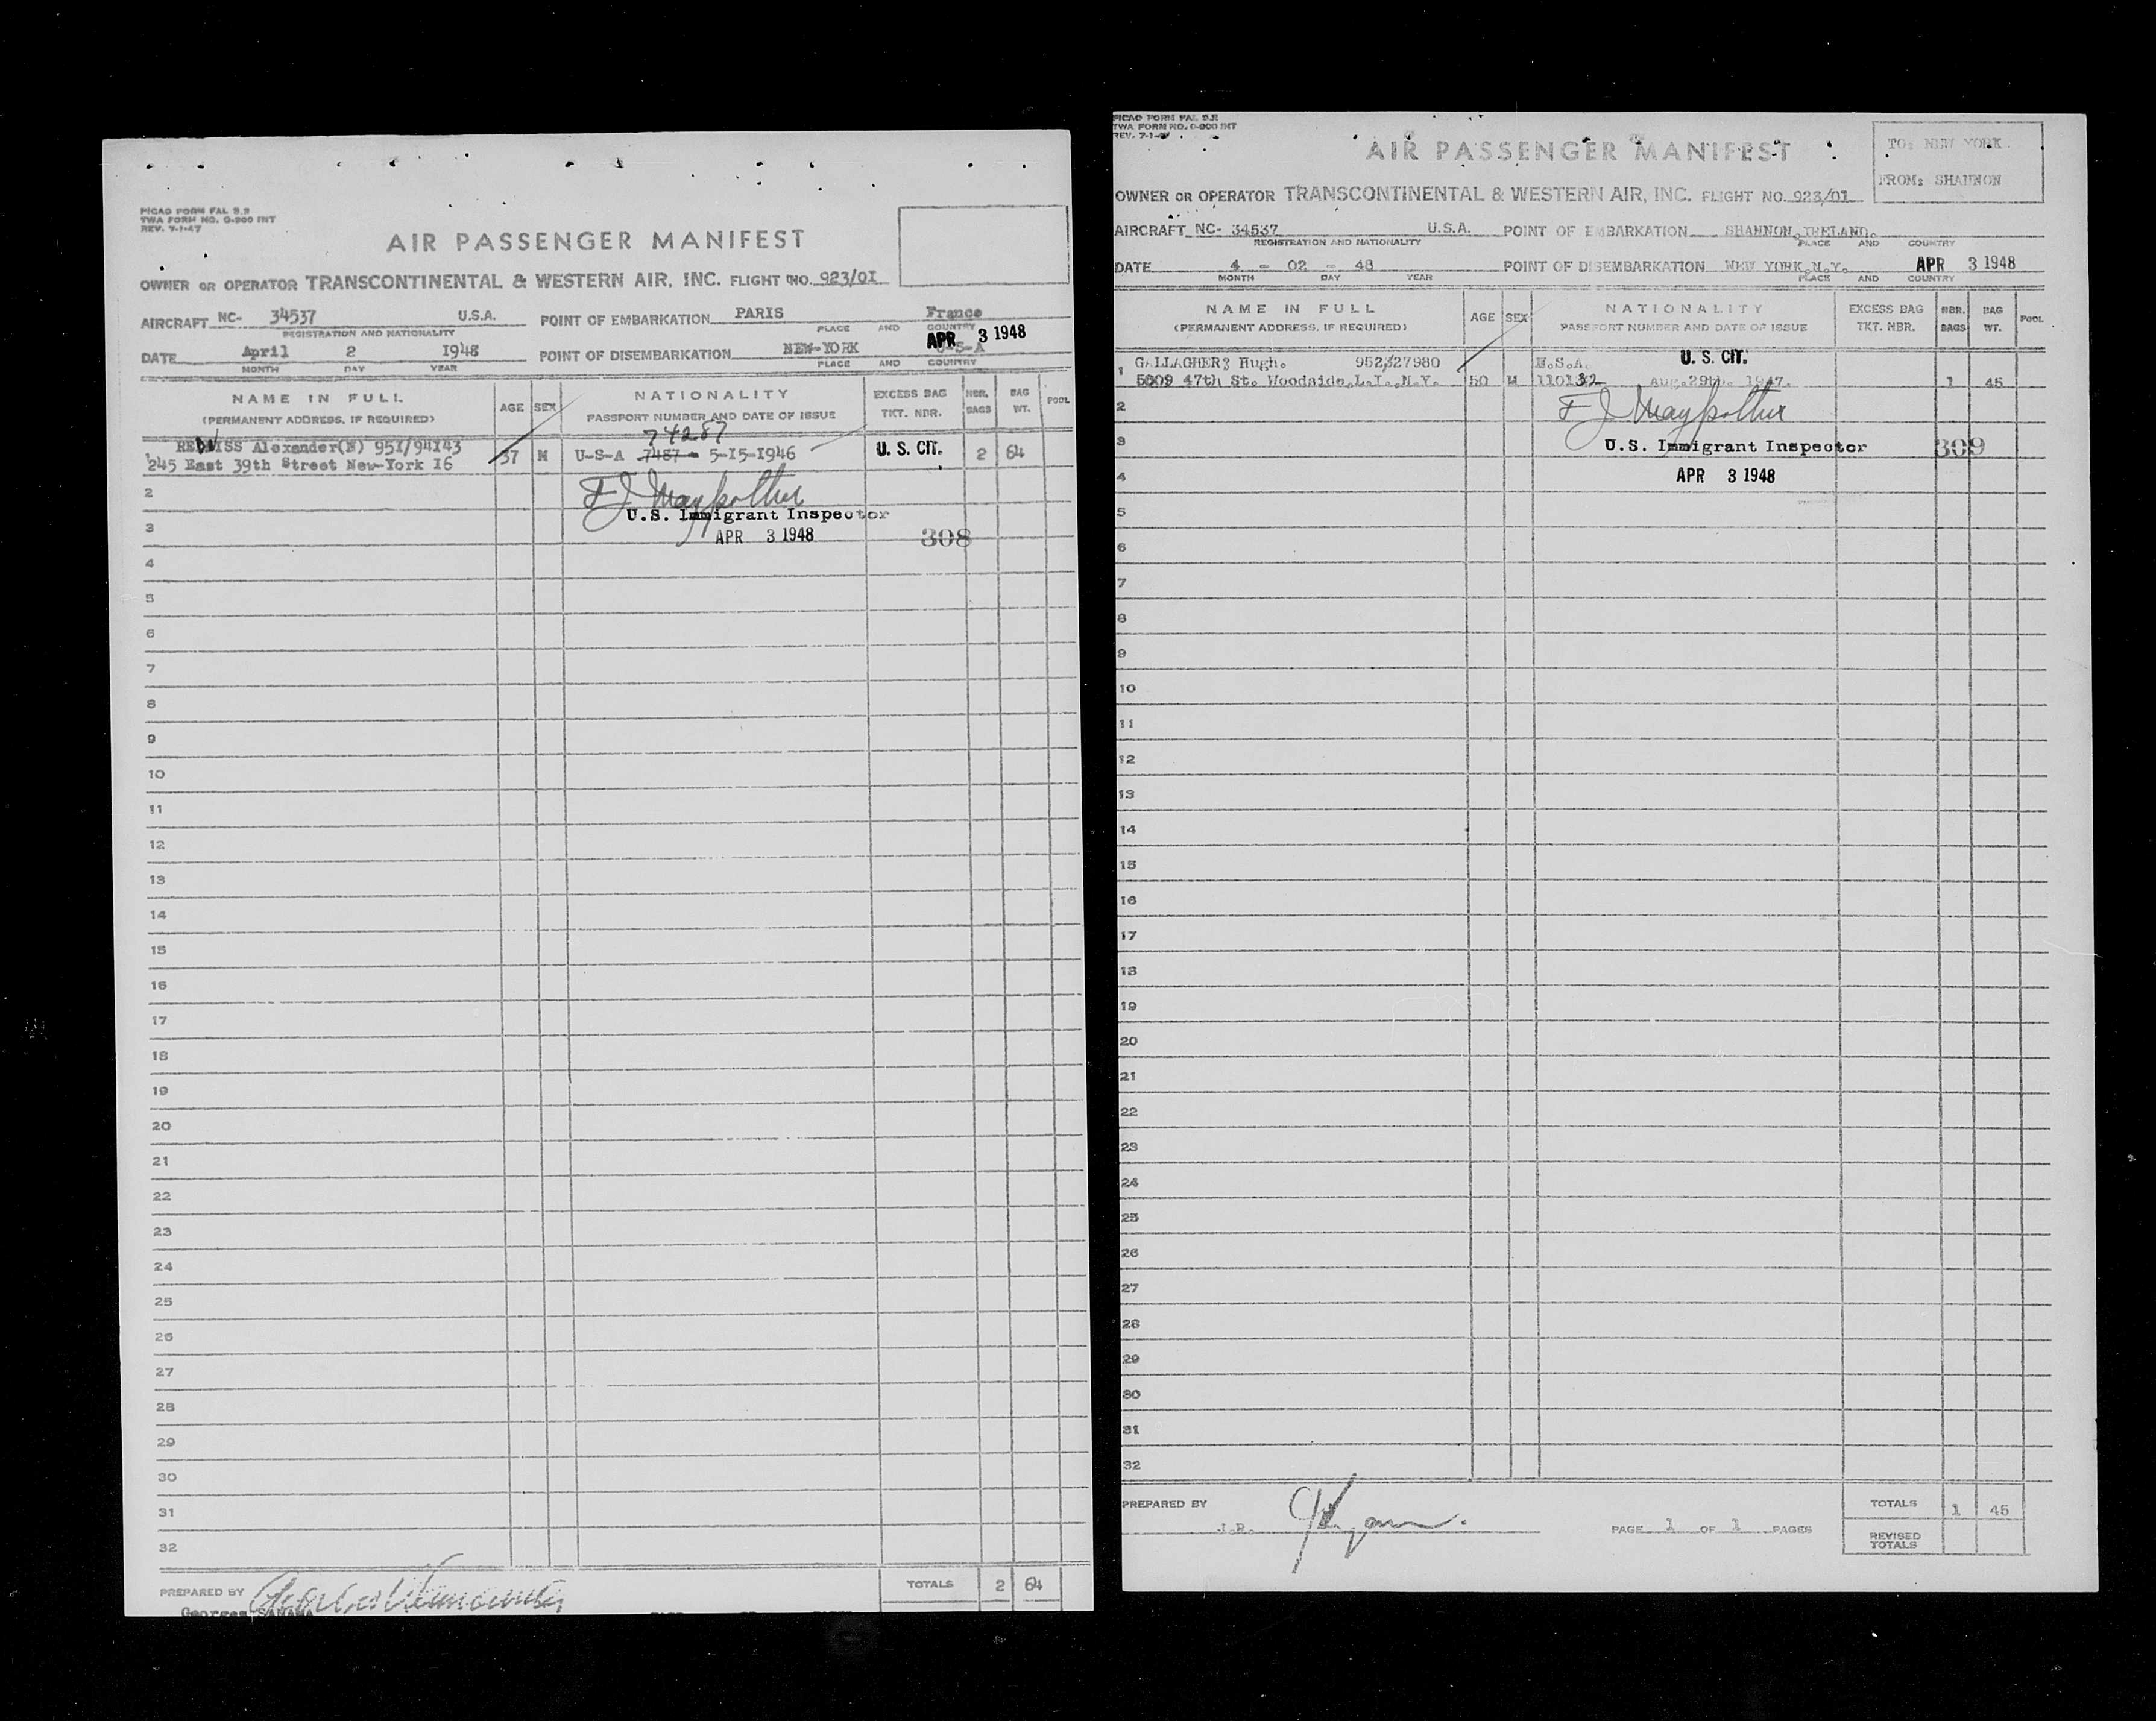 PICAO FORM FAL 3.2
TWA FORM NO. O-900 INT
REV. 7-1-47
AIR PASSENGER MANIFEST
OWNER OR OPERATOR TRANSCONTINENTAL & WESTERN AIR, INC. FLIGHT NO. 923/01
AIRCRAFT NC- 34537 U.S.A. POINT OF EMBARKATION PARIS France
REGISTRATION AND NATIONALITY PLACE AND COUNTRY
APR 3 1948
DATE April 2 1948 POINT OF DISEMBARKATION NEW-YORK U-S-A
MONTH DAY YEAR PLACE AND COUNTRY
NAME IN FULL AGE SEX NATIONALITY EXCESS BAG NBR. BAG POOL
(PERMANENT ADDRESS, IF REQUIRED) PASSPORT NUMBER AND DATE OF ISSUE TKT. NBR. BAGS WT.
74287
1 Alexander(N) 951/94143
245 East 39th Street New-York 16 37 M U-S-A 7487 - 5-15-1946 U. S. CIT. 2 64
2
U.S. Immigrant Inspector
3 APR 3 1948 308
4
5
6
7
8
9
10
11
12
13
14
15
16
17
18
19
20
21
22
23
24
25
26
27
28
29
30
31
32
PREPARED BY TOTALS 2 64
Georges SAMAMA
PICAO FORM FAL 3.2
TWA FORM NO. O-900 INT
REV. 7-1-47
AIR PASSENGER MANIFEST
TO: NEW YORK.
FROM: SHANNON
OWNER OR OPERATOR TRANSCONTINENTAL & WESTERN AIR, INC. FLIGHT NO. 923/01
AIRCRAFT NC- 34537 U.S.A. POINT OF EMBARKATION SHANNON, IRELAND.
REGISTRATION AND NATIONALITY PLACE AND COUNTRY
DATE 4 - 02 - 48 POINT OF DISEMBARKATION NEW YORK,N.Y. APR 3 1948
MONTH DAY YEAR PLACE AND COUNTRY
NAME IN FULL AGE SEX NATIONALITY EXCESS BAG NBR. BAG POOL
(PERMANENT ADDRESS, IF REQUIRED) PASSPORT NUMBER AND DATE OF ISSUE TKT. NBR. BAGS WT.
1 GALLAGHER; Hugh. 952/327980 U.S.A. U. S. CIT.
5009 47th St. Woodside,L.I.,N.Y. 50 M 110132 Aug.29th. 1947. 1 45
2
3 U.S. Immigrant Inspector 309
4 APR 3 1948
5
6
7
8
9
10
11
12
13
14
15
16
17
18
19
20
21
22
23
24
25
26
27
28
29
30
31
32
PREPARED BY TOTALS 1 45
J.R. PAGE 1 OF 1 PAGES
REVISED TOTALS